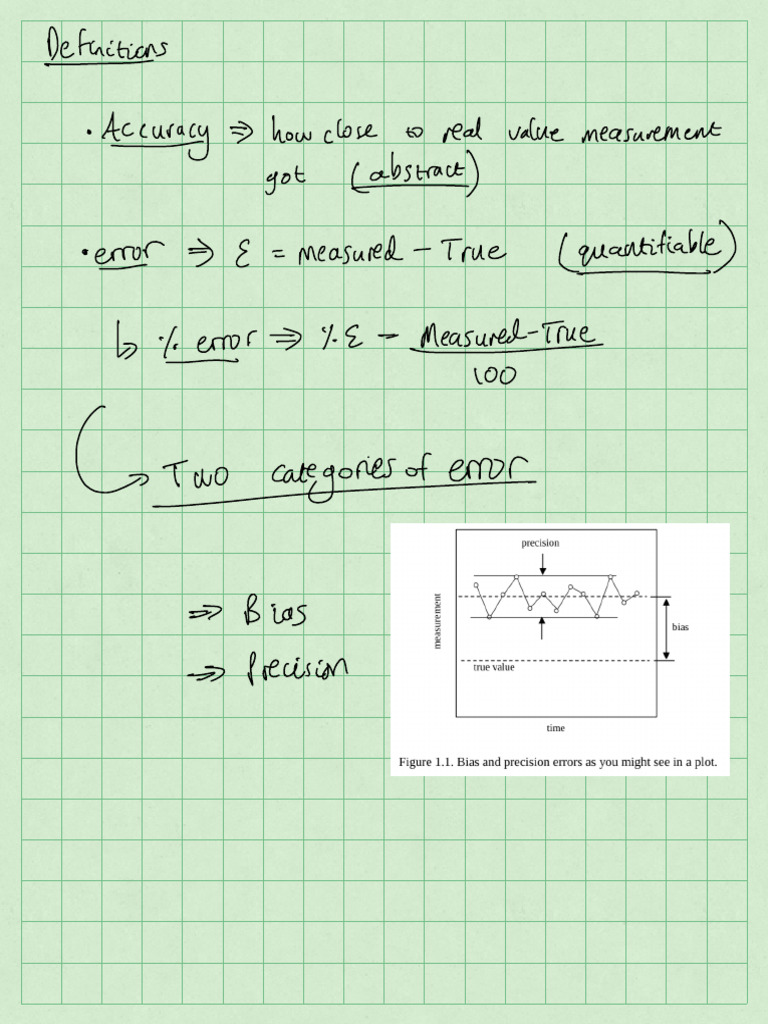 Definitions
• Accuracy ⇒ how close to real value measurement
got (abstract)
• error ⇒ Ɛ = measured – True (quantifiable)
↳ % error ⇒ % Ɛ – Measured-True
100
Two categories of error
⇒ Bias
⇒ Precision
precision
measurement
bias
true value
time
Figure 1.1. Bias and precision errors as you might see in a plot.